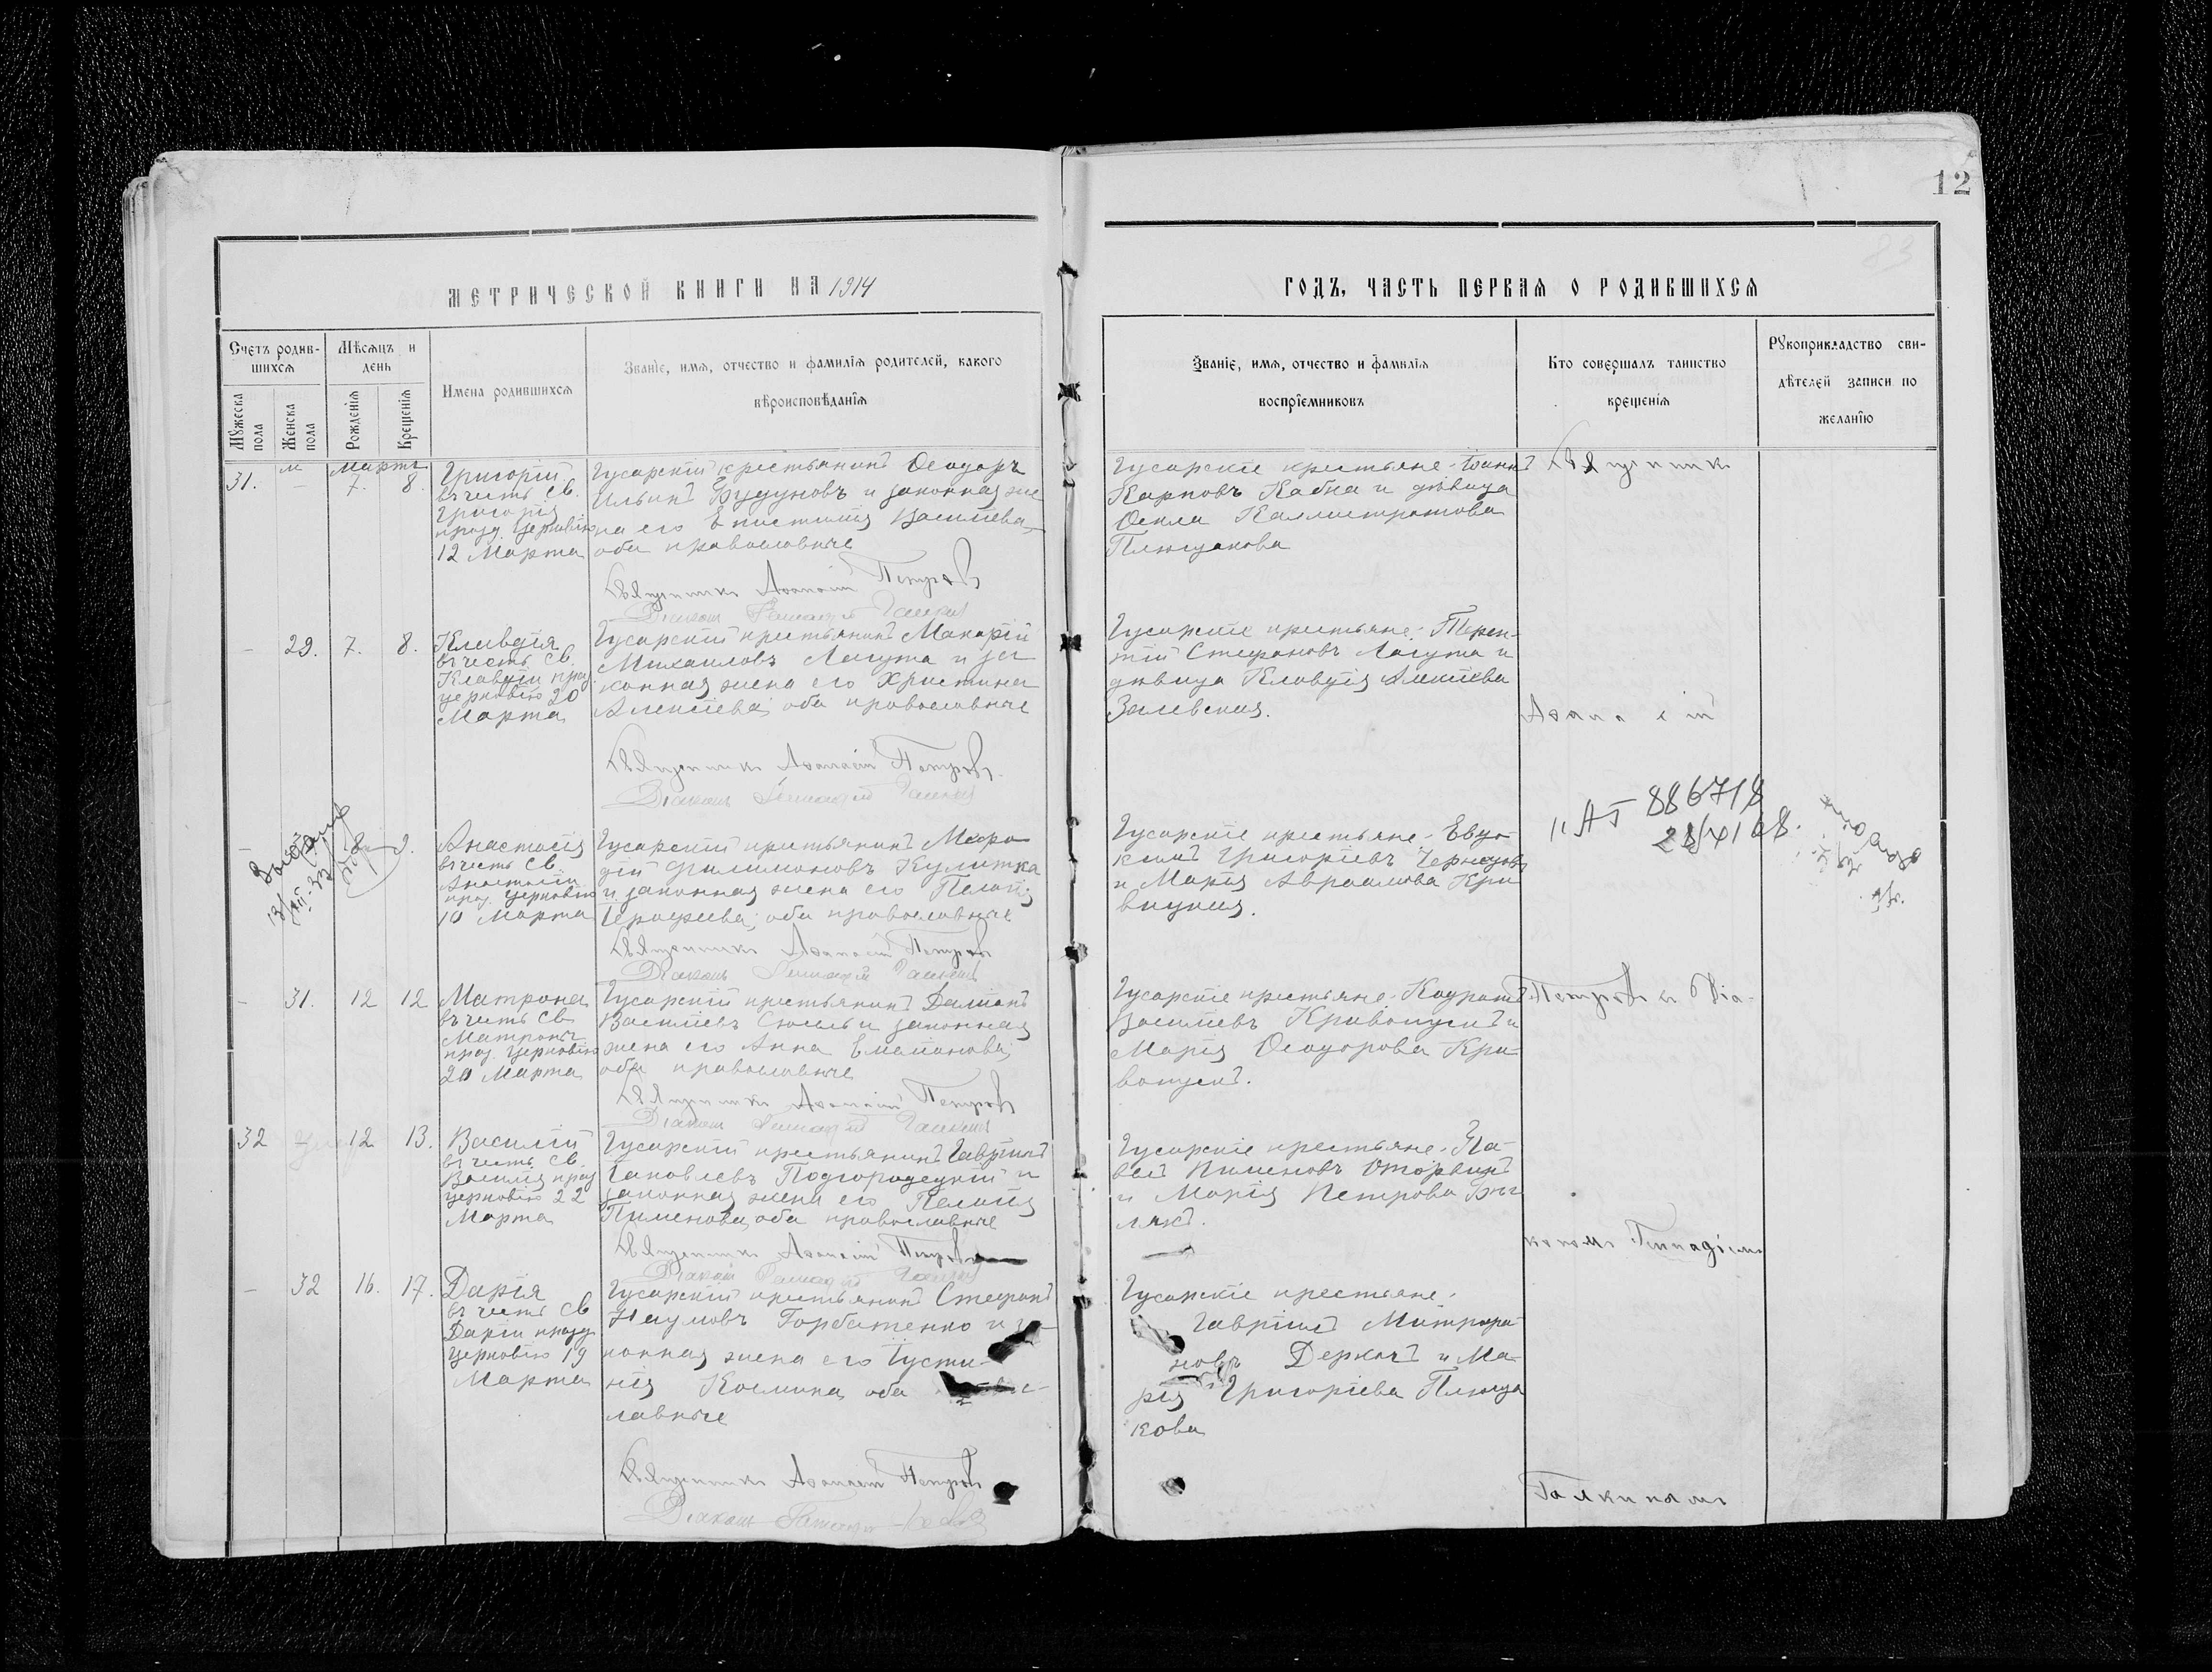 12
83
МЕТРИЧЕСКОЙ КНИГИ НА 1914
ГОДЪ, ЧАСТЬ ПЕРВАЯ О РОДИВШИХСЯ
Счетъ родив-
шихся
Мужеска пола
Женска пола
Мѣсяцъ и
день
Рожденія
Крещенія
Имена родившихся
Званіе, имя, отчество и фамилія родителей, какого
вѣроисповѣданія
Званіе, имя, отчество и фамилія
воспріемниковъ
Кто совершалъ таинство
крещенія
Рукоприкладство сви-
дѣтелей записи по
желанію
м Мартъ
31. – 7. 8.
Григорій
въ честь св.
Григорія
празд. церковію
12 Марта
Гусарскій крестьянинъ Ѳеодоръ
Ильинъ Будуновъ и законная же
на его Епистимія Василіева,
оба православные
Священникъ Аѳанасій Петровъ
Діаконъ Геннадій Галкинъ
Гусарскіе крестьяне – Іоаннъ
Карповъ Кабка и дѣвица
Ѳекла Каллистратова
Плющакова
Священникъ
– 29. 7. 8.
Клавдія
въ честь св.
Клавдіи праз
церковію 20
Марта
Гусарскій крестьянинъ Макарій
Михаиловъ Лагута и за
конная жена его Христина
Алексіева, оба православные
Священникъ Аѳанасій Петровъ.
Діаконъ Геннадій Галкинъ
Гусарскіе крестьяне: Терен-
тій Стефановъ Лагута и
дѣвица Клавдія Алексіева
Залевская.
Аѳанасій
– 8 9.
Анастасія
въ честь св.
Анастасіи
праз. церковію
10 Марта
Гусарскій крестьянинъ Меѳо
дій Филимоновъ Кулитка
и законная жена его Пелагія
оба православные
Священникъ Аѳанасій Петровъ
Діаконъ Геннадій Галкинъ
Гусарскіе крестьяне – Евдо-
кимъ Григоріевъ
и Марія Авраамова Кри
II АБ 886718
– 31. 12 12
Матрона
въ честь св.
Матроны
праз. церковію
20 Марта
Гусарскій крестьянинъ Даміанъ
Василіевъ и законная
жена его Анна Емеліанова,
оба православные
Священникъ Аѳанасій Петровъ
Діаконъ Геннадій Галкинъ
Гусарскіе крестьяне – Кодратъ
Василіевъ Кривопускъ и
Марія Ѳеодорова Кри-
вопускъ.
Петровъ съ Діа-
32 12 13.
Василій
въ честь св.
Василія праз
церковію 22
Марта
Гусарскій крестьянинъ Гавріилъ
Іаковлевъ Подгородецкій и
законная жена его Пелагія
Пименова, оба православные
Священникъ Аѳанасій Петровъ
Діаконъ Геннадій Галкинъ
Гусарскіе крестьяне – Па-
велъ Пименовъ Оторвинъ
и Марія Петрова Бѣг
лякъ.
кономъ Геннадіемъ
– 32 16. 17.
Дарія
въ честь св
Даріи празд
церковію 19
Марта
Гусарскій крестьянинъ Стефанъ
Наумовъ Горбатенко и за-
конная жена его Іусти-
нія Космина оба
лавные
Священникъ Аѳанасій Петровъ
Діаконъ Геннадій
Гусарскіе крестьяне –
Гавріилъ Митрофа-
новъ Деркачъ и Ма-
рія Григоріева Плюща
кова
Галкинымъ